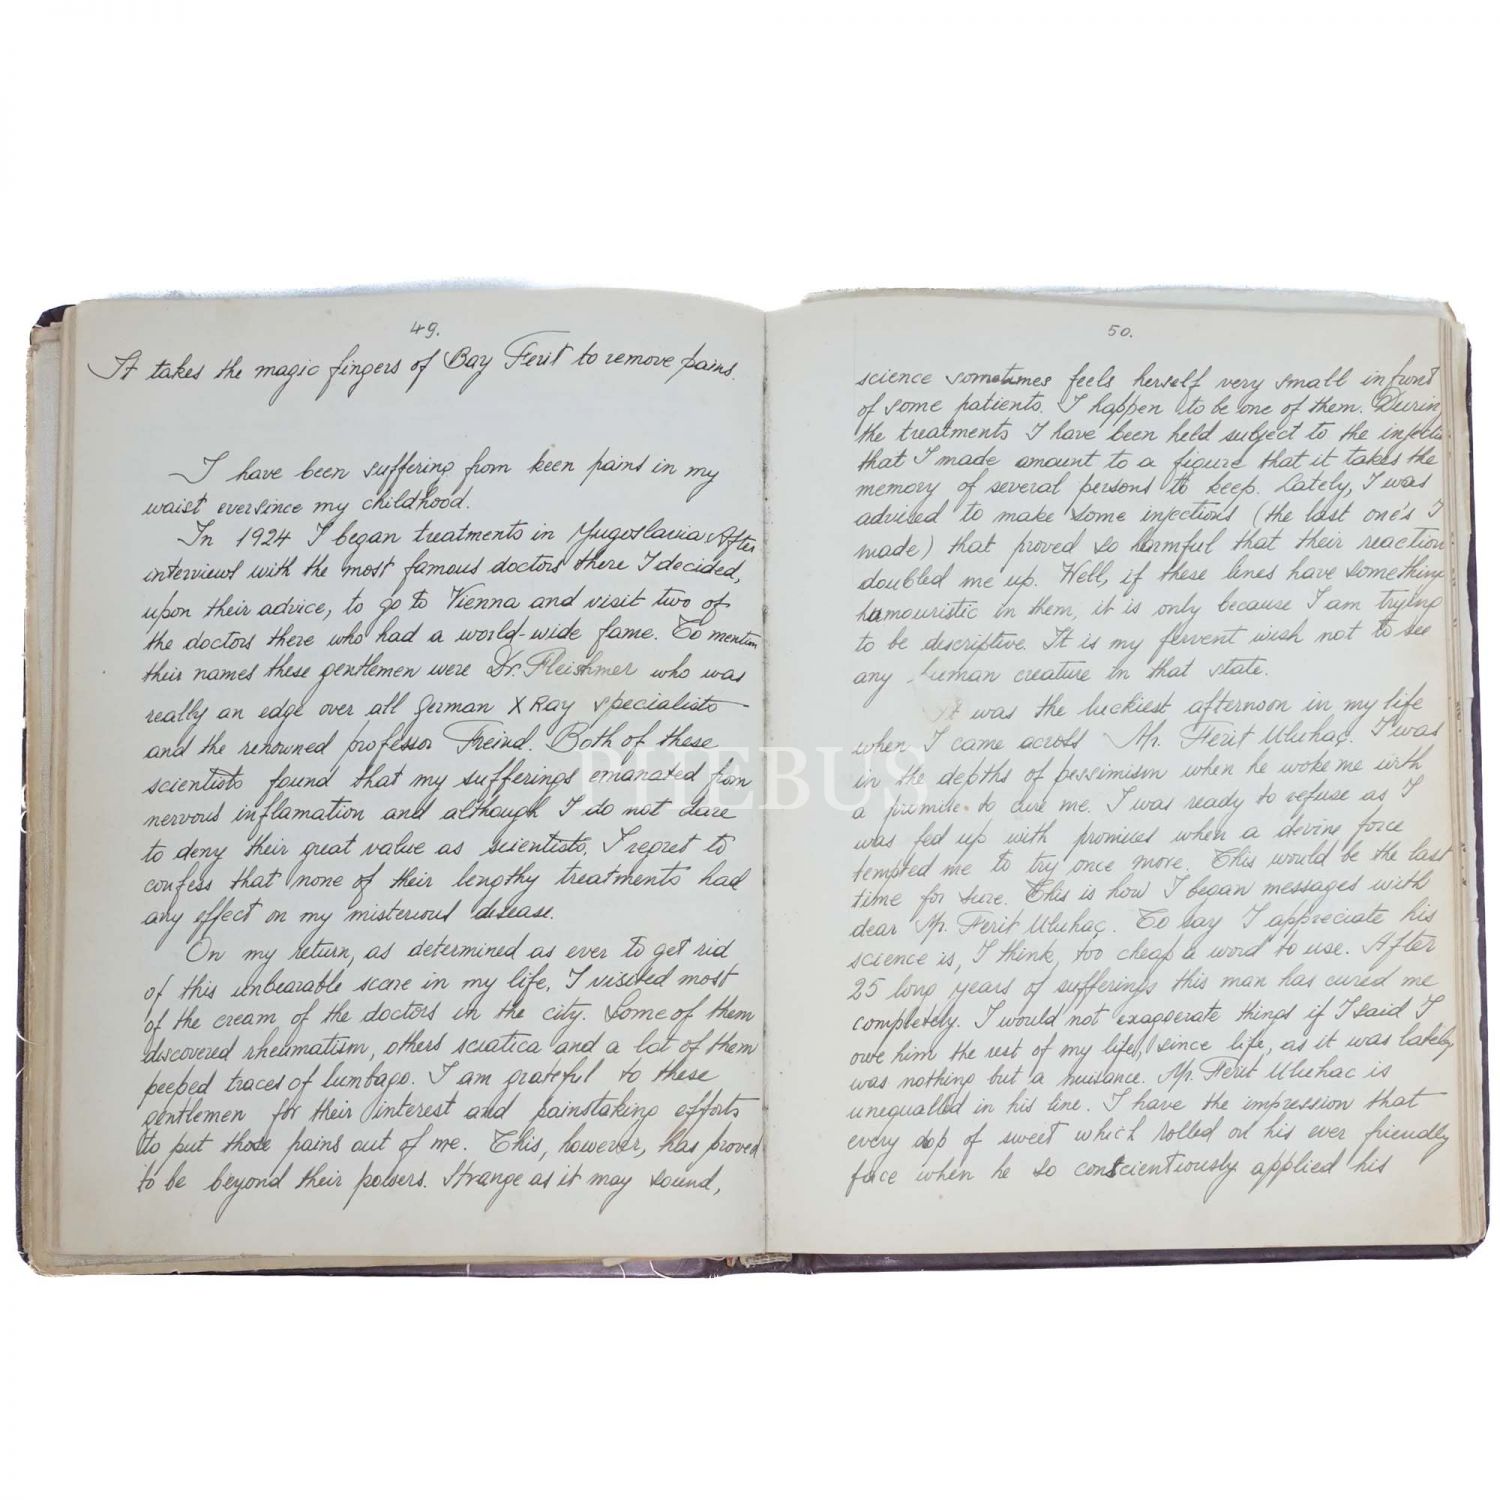 49.
It takes the magic fingers of Bay Ferit to remove pains.
I have been suffering from keen pains in my
waist eversince my childhood.
In 1924 I began treatments in Yugoslavia After
interviews with the most famous doctors there I decided,
upon their advice, to go to Vienna and visit two of
the doctors there who had a world-wide fame. To mention
their names these gentlemen were Dr. Fleishmer who was
really an edge over all German X Ray specialists
and the renowned professor Freind. Both of these
scientists found that my sufferings emanated from
nervous inflamation and although I do not dare
to deny their great value as scientists, I regret to
confess that none of their lengthy treatments had
any effect on my misterious disease.
On my return, as determined as ever to get rid
of this unbearable score in my life, I visited most
of the cream of the doctors in the city. Some of them
discovered rheumatism, others sciatica and a lot of them
peeped traces of lumbago. I am grateful to these
gentlemen for their interest and painstaking efforts
to put those pains out of me. This, however, has proved
to be beyond their powers. Strange as it may sound,
50.
science sometimes feels herself very small in front
of some patients. I happen to be one of them. During
the treatments I have been held subject to the
that I made amount to a figure that it takes the
memory of several persons to keep. Lately, I was
advised to make some injections (the last one's I
made) that proved so harmful that their reaction
doubled me up. Well, if these lines have something
humouristic in them, it is only because I am trying
to be descriptive. It is my fervent wish not to see
any human creature in that state.
It was the luckiest afternoon in my life
when I came across Mr. Ferit Uluhaç. I was
in the depths of pessimism when he woke me with
a promise to cure me. I was ready to refuse as I
was fed up with promises when a devine force
tempted me to try once more. This would be the last
time for sure. This is how I began messages with
dear Mr. Ferit Uluhaç. To say I appreciate his
science is, I think, too cheap a word to use. After
25 long years of sufferings this man has cured me
completely. I would not exaggerate things if I said I
owe him the rest of my life, since life, as it was lately
was nothing but a nuisance. Mr. Ferit Uluhac is
unequalled in his line. I have the impression that
every drop of sweet which rolled on his ever friendly
face when he so conscientiously applied his
PHEBUS